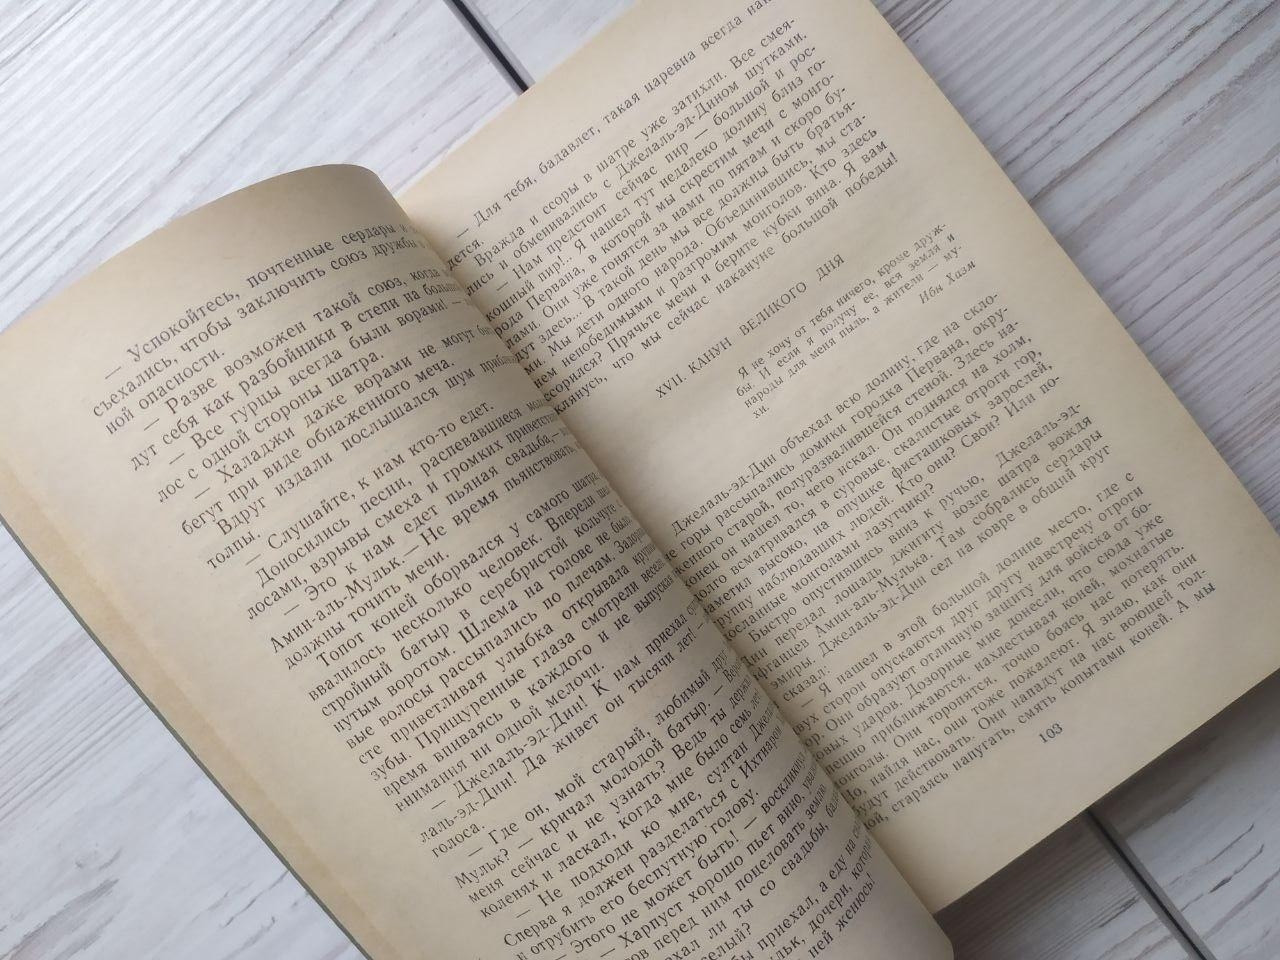 — Успокойтесь, почтенные сердары и
съехались, чтобы заключить союз дружбы
ной опасности.
— Разве возможен такой союз, когда
дут себя как разбойники в степи на большой
— Все гурцы всегда были ворами! —
лос с одной стороны шатра.
— Халаджи даже ворами не могут быть
бегут при виде обнаженного меча.
Вдруг издали послышался шум
толпы.
— Слушайте, к нам кто-то едет.
Доносились песни, распевавшиеся
лосами, взрывы смеха и громких
— Это к нам едет пьяная свадьба,—
Амин-аль-Мульк.— Не время пьянствовать,
должны точить мечи.
Топот коней оборвался у самого шатра,
ввалилось несколько человек. Впереди
стройный батыр в серебристой кольчуге
нутым воротом. Шлема на голове не было
вые волосы рассыпались по плечам. Задорная
сте приветливая улыбка открывала крупные
зубы. Прищуренные глаза смотрели весело
время впиваясь в каждого и не выпуская
внимания ни одной мелочи.
— Джелаль-эд-Дин! К нам приехал
лаль-эд-Дин! Да живет он тысячи лет!
голоса.
— Где он, мой старый, любимый друг
Мульк? — кричал молодой батыр. —
меня сейчас и не узнать? Ведь ты держал
коленях и ласкал, когда мне было семь лет
— Не подходи ко мне, султан
Сперва я должен разделаться с Ихтияром
и отрубить его беспутную голову.
— Этого не может быть! — воскликнул
— Харпуст хорошо пьет вино,
ров перед ним поцеловать землю
хал ли ты со свадьбы,
селый?
бы приехал, а еду на
льк, дочери,
ней женюсь.
— Для тебя, бадавлет, такая царевна всегда
дется.
Вражда и ссоры в шатре уже затихли. Все смея-
лись и обменивались с Джелаль-эд-Дином шутками.
— Нам предстоит сейчас пир — большой и рос-
кошный пир!.. Я нашел тут недалеко долину близ го-
рода Первана, в которой мы скрестим мечи с монго-
лами. Они уже гонятся за нами по пятам и скоро бу-
дут здесь... В такой день мы все должны быть братья-
ми. Мы дети одного народа. Объединившись, мы ста-
нем непобедимыми и разгромим монголов. Кто здесь
ссорился? Прячьте мечи и берите кубки вина. Я вам
клянусь, что мы сейчас накануне большой победы!
XVII. КАНУН ВЕЛИКОГО ДНЯ
Я не хочу от тебя ничего, кроме друж-
бы. И если я получу ее, вся земля и
народы для меня пыль, а жители — му-
хи.
Ибн Хазм
Джелаль-эд-Дин объехал всю долину, где на скло-
не горы рассыпались домики городка Первана, окру-
женного старой, полуразвалившейся стеной. Здесь на-
конец он нашел то, чего искал. Он поднялся на холм,
долго всматривался в суровые скалистые отроги гор,
заметил высоко, на опушке фисташковых зарослей,
группу наблюдавших людей. Кто они? Свои? Или по-
досланные монголами лазутчики?
Быстро опустившись вниз к ручью, Джелаль-эд-
Дин передал лошадь джигиту возле шатра вождя
урганцев Амин-аль-Мулька. Там собрались сердары
и эмиры. Джелаль-эд-Дин сел на ковре в общий круг
сказал:
— Я нашел в этой большой долине место, где с
двух сторон опускаются друг навстречу другу отроги
гор. Они образуют отличную защиту для войска от бо-
ковых ударов. Дозорные мне донесли, что сюда уже
спешно приближаются, нахлестывая коней, мохнатые
монголы. Они торопятся, точно боясь нас потерять.
Но, найдя нас, они тоже пожалеют. Я знаю, как они
будут действовать. Они нападут на нас воющей тол-
пой, стараясь напугать, смять копытами коней. А мы
103